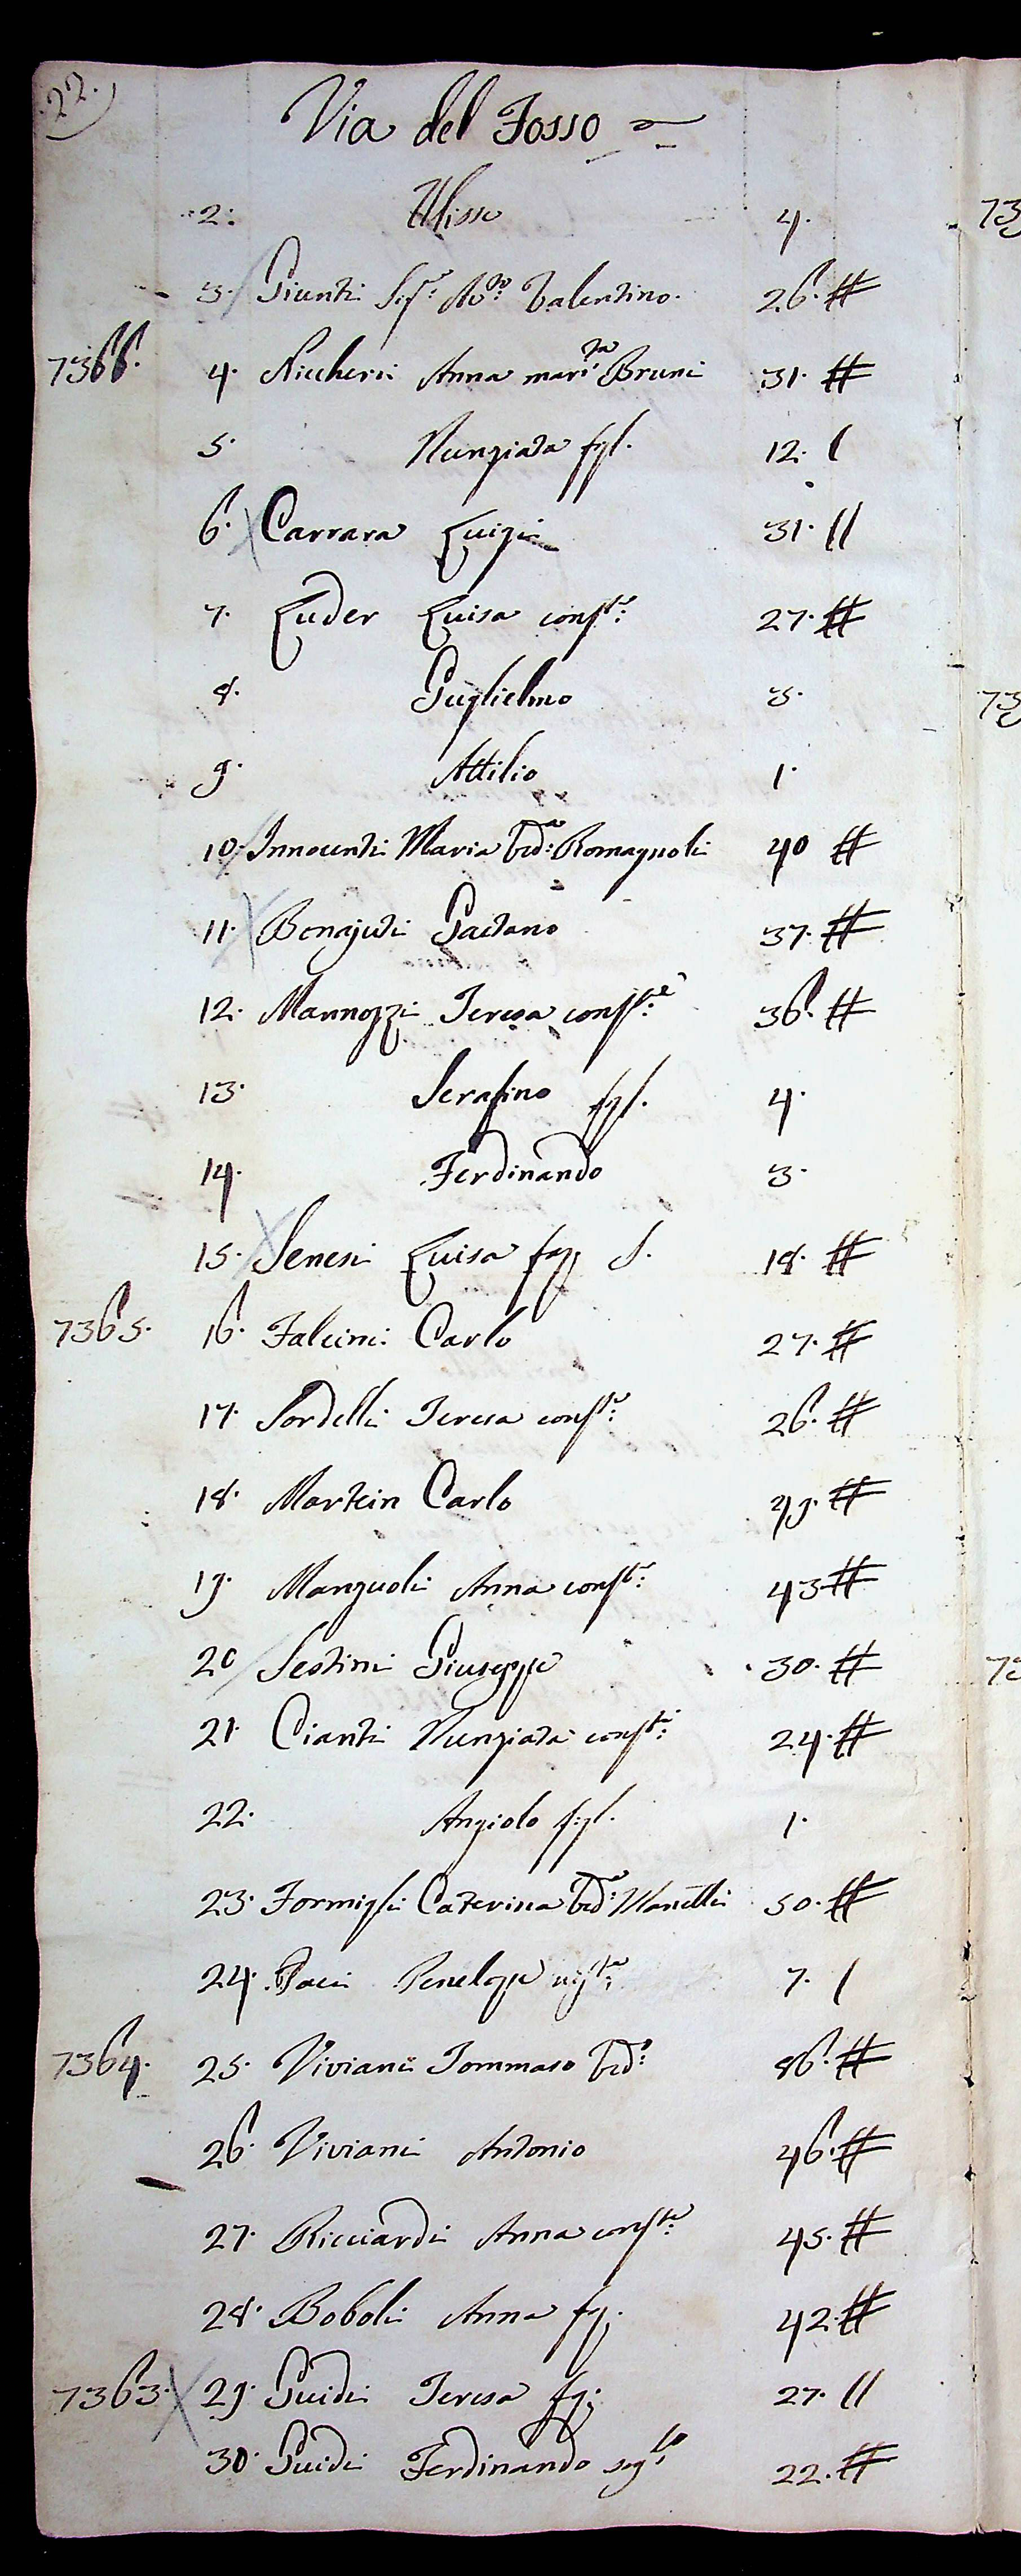 22.
Via del Fosso
2. Ulisse 4.
3. Giunti Sigr. Avo. Valentino. 26. #
7366. 4. Niccheri Anna marta Bruni 31. #
5. Nunziata figl. 12. (
6. Carrara Luigi 31. //
7. Luder Luisa conste: 27. #
8. Guglielmo 3.
9. Attilio 1.
10 Innocenti Maria veda: Romagnoli 40 #
11. Bonajuti Gaetano 37. #
12. Mannozzi Teresa conste: 36. #
13. Serafino figl. 4.
14. Ferdinando 3.
15. Senesi Luisa fag S. 18. #
7365. 16. Falcini Carlo 27. #
17. Sordelli Teresa conste: 26. #
18. Martein Carlo 49. #
19. Manzuoli Anna conste: 43 #
20 Sestini Giuseppe 30. #
21. Cianti Nunziata conste: 24. #
22. Angiolo figl. 1.
23. Formigli Caterina veda: Manetti 50. #
24. Paci Penelope nipte: 7. (
7364. 25. Viviani Tommaso vedo: 86. #
26. Viviani Antonio 46. #
27. Ricciardi Anna conste: 45. #
28. Boboli Anna fg. 42. #
7363. 29. Guidi Teresa fg. 27. //
30. Guidi Ferdinando segto 22. #